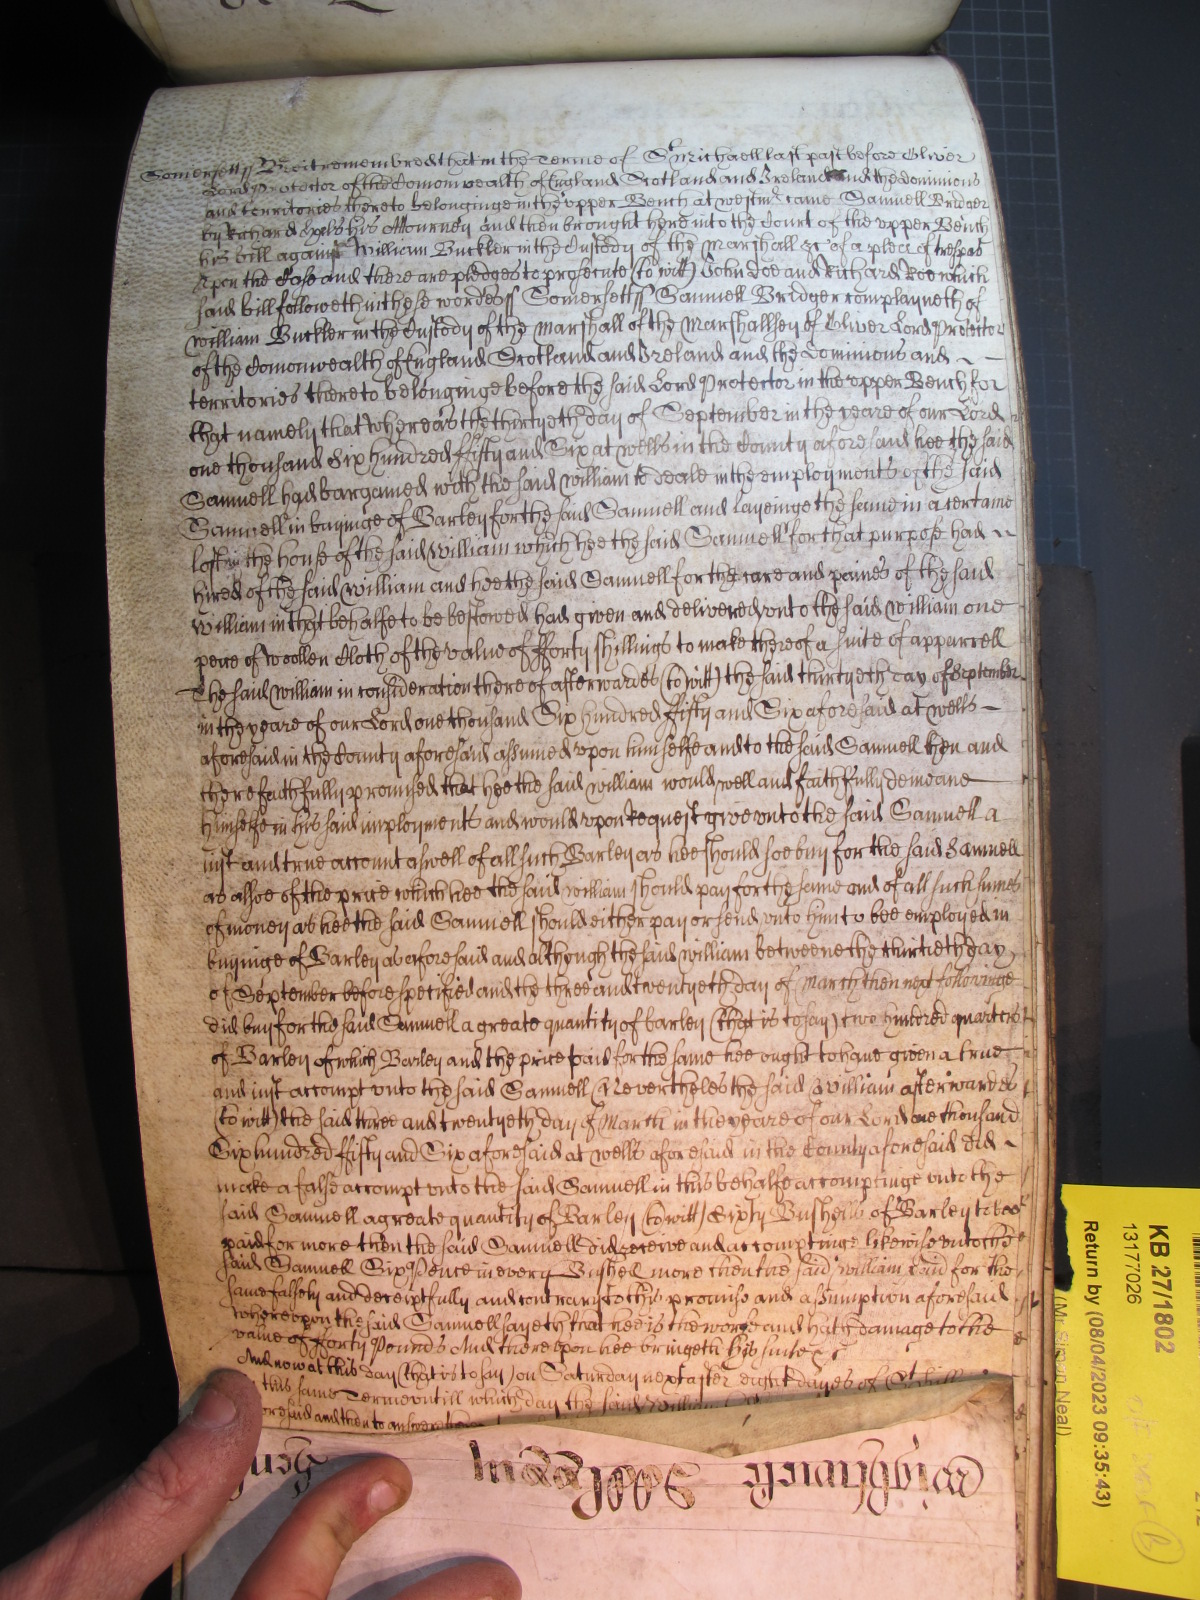 Somersett ss Be it remembred that in the Terme of St Michaell last past before Oliver
Lord Protector of the Comonwealth of England Scotland and Ireland and the dominions
and territories thereto belonginge in the upper Bench at westmr came Samuell Bridger
by Richard his Attourney and then brought here into the Court of the upper Bench
his bill against William Buckler in the Custody of the Marshall &c of a plea of trespas
upon the Case and there are pledges to prosecute (to witt) John Doe and Richard Roe which
said bill followeth in these wordes ss Somersett ss Samuell Bridger complayneth of
William Buckler in the Custody of the Marshall of the Marshallsey of Oliver Lord Protector
of the Comonwealth of England Scotland and Ireland and the Dominions and
territories thereto belonginge before the said Lord Protector in the upper Bench for
that namely that whereas the thirtyeth day of September in the yeare of our Lord
one thousand Six hundred ffifty and Six at wells in the County aforesaid hee the said
Samuell had bargained with the said William to deale in the employments of the said
Samuell in buyinge of Barley for the said Samuell and layeinge the same in a certaine
loft in the house of the said William which hee the said Samuell for that purpose had
hired of the said William and hee the said Samuell for the care and paines of the said
William in that behalfe to be bestowed had given and delivered unto the said William one
peece of woollen Cloth of the value of fforty shillings to make thereof a suite of apparrell
The said William in consideration thereof afterwardes (to witt) the said thirtyeth day of September
in the yeare of our Lord one thousand Six hundred ffifty and Six aforesaid at wells
aforesaid in the County aforesaid assumed upon himselfe and to the said Samuell then and
there faithfully promised that hee the said William would well and faithfully demeane
himselfe in his said imployments and would upon Request give unto the said Samuell a
just and true account aswell of all such Barley as hee should soe buy for the said Samuell
as alsoe of the price which hee the said William should pay for the same and of all such sumes
of money as hee the said Samuell should either pay or send unto him to bee employed in
buyinge of Barley as aforesaid and although the said William betweene the thirtieth day
of September before specified and the three and twentyeth day of March then next followinge
did buy for the said Samuell a greate quantity of barley (that is to say) two hundred quarters
of Barley of which Barley and the price paid for the same hee ought to have given a true
and just accompt unto the said Samuell Neverthelesse the said William afterwardes
(to witt) the said three and twentyeth day of March in the yeare of our Lord one thousand
Six hundred ffifty and Six aforesaid at wells aforesaid in the County aforesaid did
make a false accompt unto the said Samuell in this behalfe accomptinge unto the
said Samuell a greate quantity of Barley (to witt) Sixty Bushells of Barley to bee
paid for more then the said Samuell did receive and accomptinge likewise unto the
said Samuell Six Pence in every Bushell more then the said William paid for the
same falsely and deceiptfully and contrary to his promise and assumption aforesaid
whereupon the said Samuell sayeth that hee is the worse and hath damage to the
value of fforty Pounds And thereupon hee bringeth his suite &c
And now at this day (that is to say) on Saturday next after eight dayes of St
this same Terme untill which day the said William
and then to answere